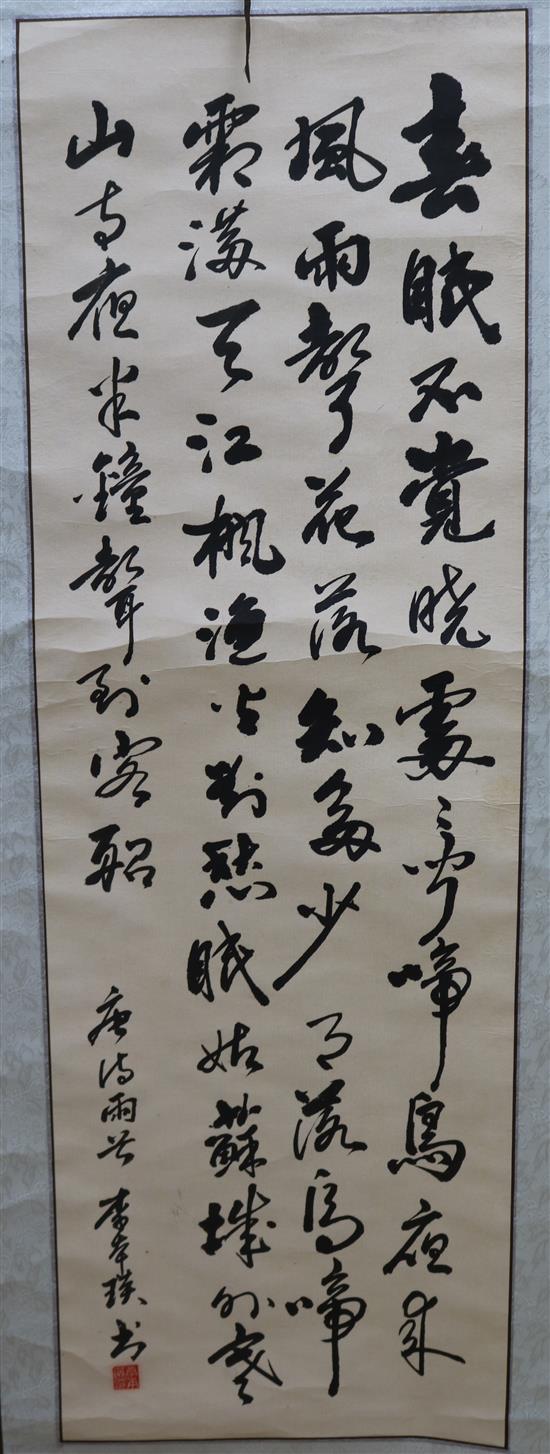 春眠不覺曉處〻聞啼鳥夜來
風雨聲花落知多少 月落烏啼
霜滿天江楓漁火對愁眠姑蘇城外寒
山寺夜半鐘聲到客船
唐詩兩首 李本璞書